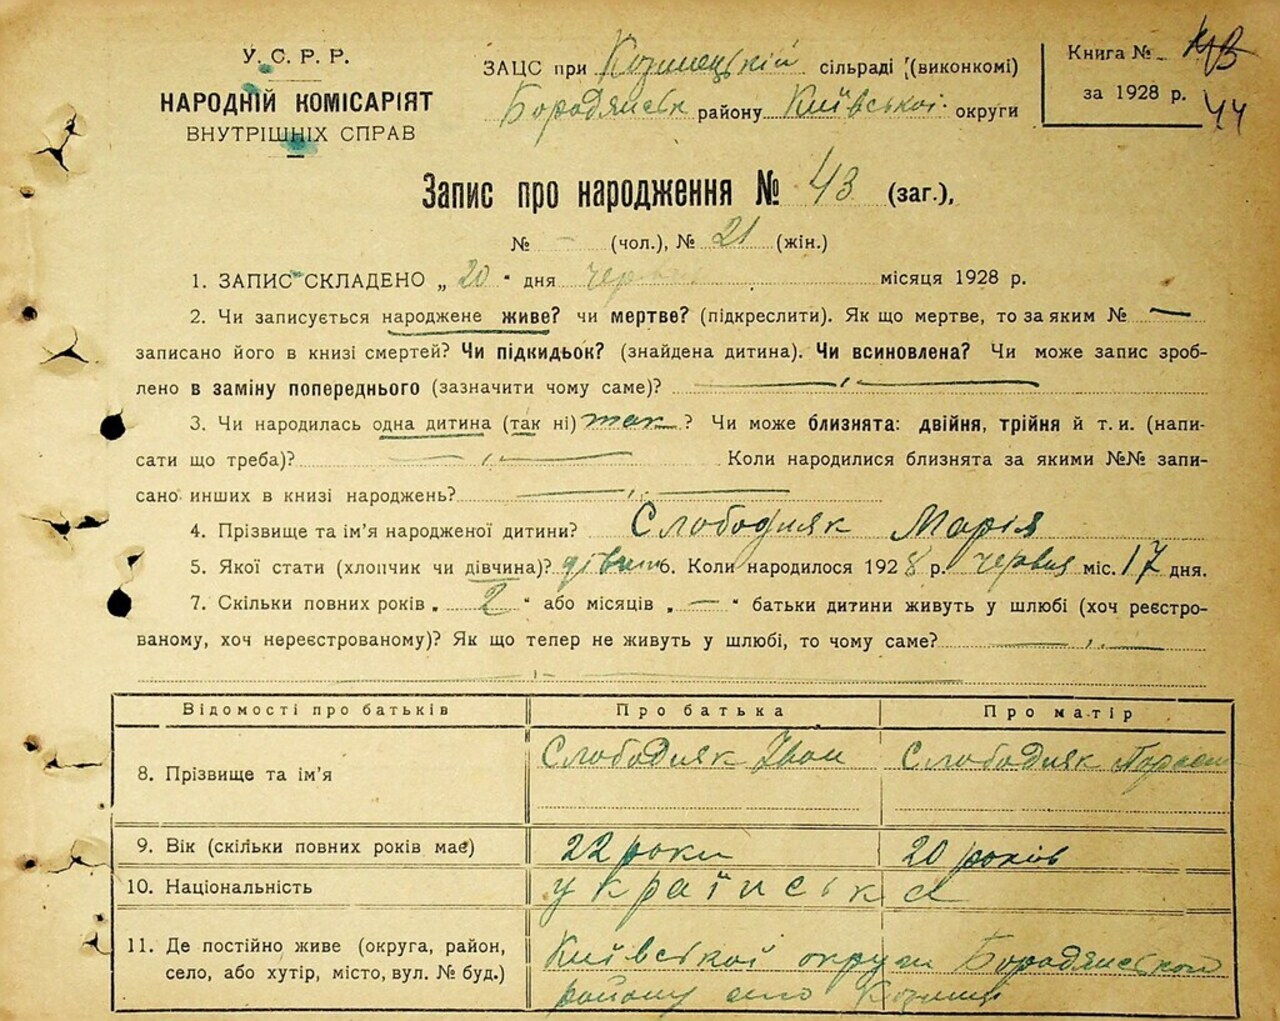 У. С. Р. Р.
НАРОДНІЙ КОМІСАРІЯТ
ВНУТРІШНІХ СПРАВ
ЗАЦС при сільраді (виконкомі)
Бородянськ району Київської округи
Книга №
за 1928 р. 44
Запис про народження № 43 (заг.),
№ — (чол.), № 21 (жін.)
1. ЗАПИС СКЛАДЕНО „ 20 " дня червня місяця 1928 р.
2. Чи записується народжене живе? чи мертве? (підкреслити). Як що мертве, то за яким № —
записано його в книзі смертей? Чи підкидьок? (знайдена дитина). Чи всиновлена? Чи може запис зроб-
лено в заміну попереднього (зазначити чому саме)? — „ —
3. Чи народилась одна дитина (так ні) так ? Чи може близнята: двійня, трійня й т. и. (напи-
сати що треба)? — „ — Коли народилися близнята за якими №№ запи-
сано инших в книзі народжень? — „ —
4. Прізвище та ім'я народженої дитини? Слободяяк Марія
5. Якої стати (хлопчик чи дівчина)? 6. Коли народилося 1928 р. червня міс. 17 дня.
7. Скільки повних років „ 2 " або місяців „ — " батьки дитини живуть у шлюбі (хоч реєстро-
ваному, хоч нереєстрованому)? Як що тепер не живуть у шлюбі, то чому саме? — „ —
— „ —
Відомості про батьків Про батька Про матір
8. Прізвище та ім'я Слободяяк Іван Слободяяк
9. Вік (скільки повних років має) 22 роки 20 років
10. Національність українська
11. Де постійно живе (округа, район,
село, або хутір, місто, вул. № буд.) Київської округи Бородянської
району село